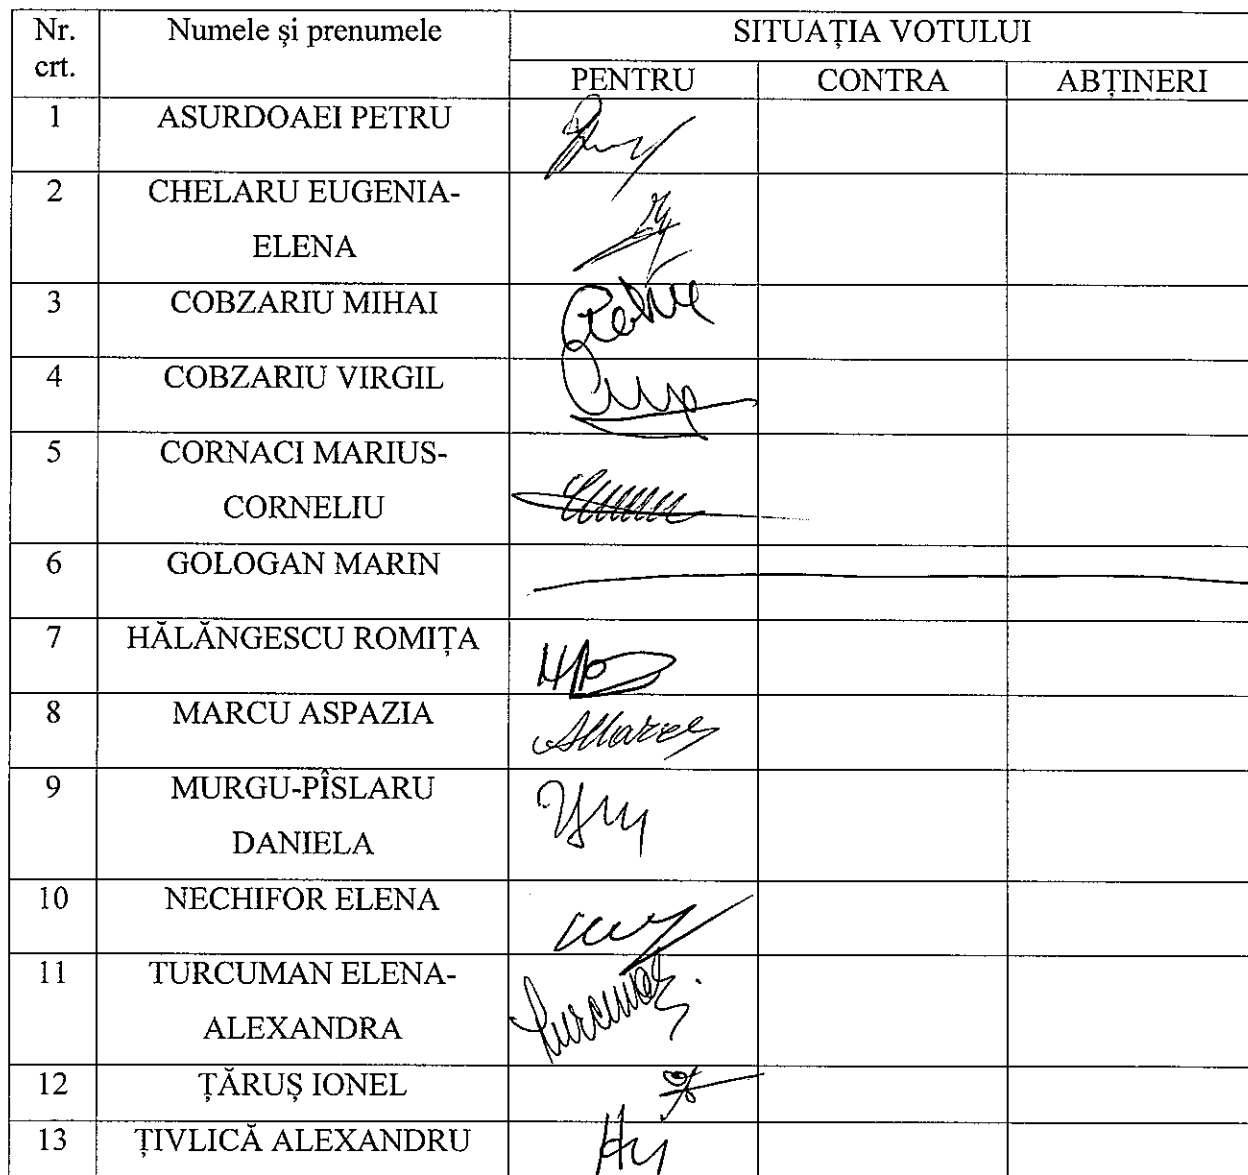 Nr. crt. Numele și prenumele SITUAȚIA VOTULUI
PENTRU CONTRA ABȚINERI
1 ASURDOAEI PETRU
2 CHELARU EUGENIA-
ELENA
3 COBZARIU MIHAI
4 COBZARIU VIRGIL
5 CORNACI MARIUS-
CORNELIU
6 GOLOGAN MARIN
7 HĂLĂNGESCU ROMIȚA
8 MARCU ASPAZIA
9 MURGU-PÎSLARU
DANIELA
10 NECHIFOR ELENA
11 TURCUMAN ELENA-
ALEXANDRA
12 ȚĂRUȘ IONEL
13 ȚIVLICĂ ALEXANDRU